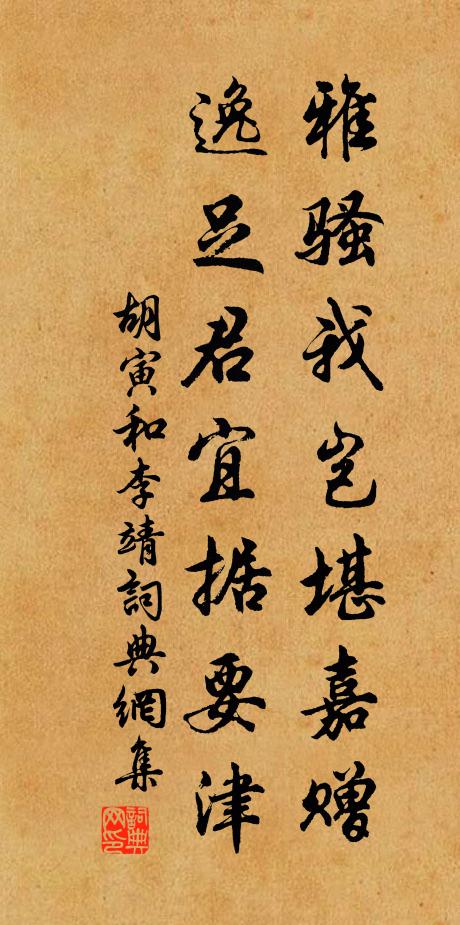 雅骚我岂堪嘉赠
逸足君宜据要津
胡寅和李靖詞典網集
詞典
网印